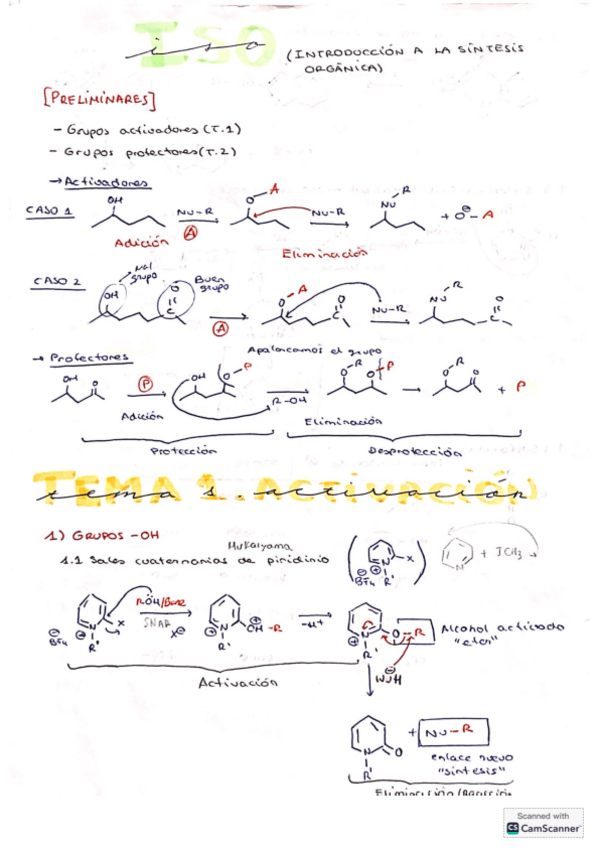 ISO
iso (INTRODUCCIÓN A LA SÍNTESIS
ORGÁNICA)
[PRELIMINARES]
- Grupos activadores (T.1)
- Grupos protectores (T.2)
→ Activadores
CASO 1
OH
NU-R
A
O-A
NU-R
NU-R
+ O⊖-A
Adición
Eliminación
CASO 2
Mal grupo
Buen grupo
OH
O
C
A
O-A
O
C
NU-R
NU-R
O
C
Apalancamos el grupo
→ Protectores
OH
O
P
OH
O-P
R-OH
O-R
O-P
O-R
O
+ P
Adición
Eliminación
Protección
Desprotección
TEMA 1. ACTIVACIÓN
tema 1. activación
1) GRUPOS -OH
Mukaiyama
1.1 Sales cuaternarias de piridinio
N⊕
X
R'
BF4⊖
N
+ ICH3 →
BF4⊖
⊕N
X
R'
R-ÖH/Base
SNAR
X⊖
⊕N
R'
⊕OH-R
-H+
⊕N
R'
O-R
Alcohol activado
"eter"
NuH
Activación
N
R'
O
+ NU-R
enlace nuevo
"síntesis"
Scanned with
CS CamScanner